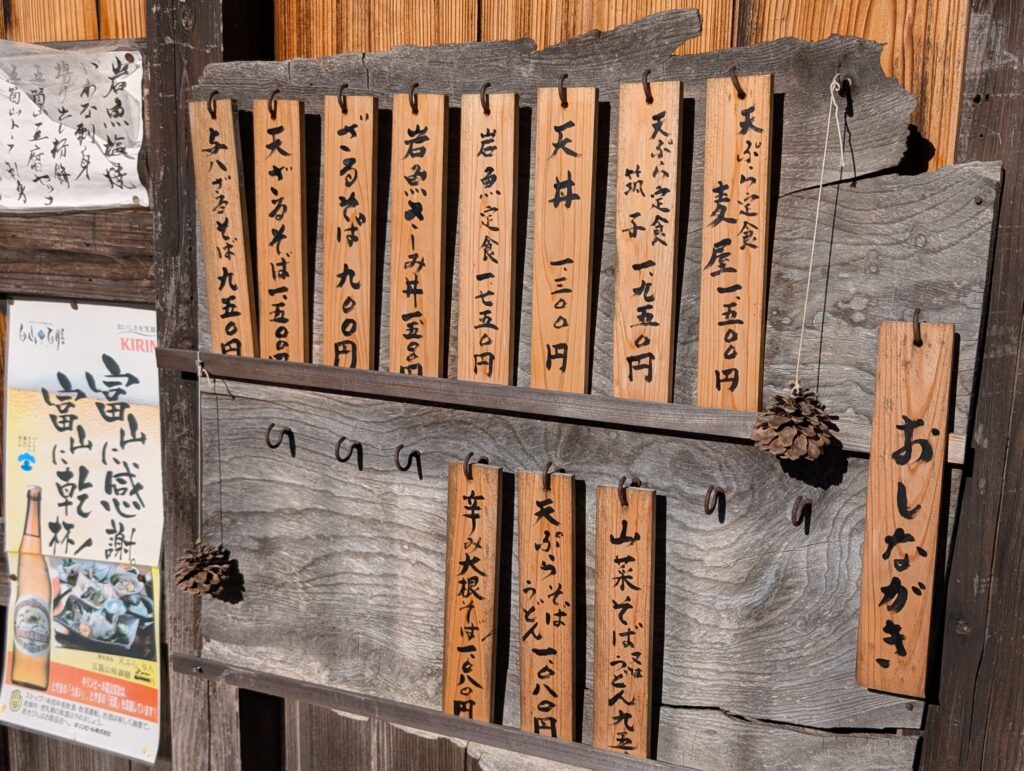 おしながき
天ぷら定食
麦屋 一、五〇〇円
天ぷら定食
筑子 一、九五〇円
天丼 一、三〇〇円
岩魚定食 一、七五〇円
岩魚さしみ丼 一、五〇〇円
ざるそば 九〇〇円
天ざるそば 一、五〇〇円
与八ざるそば 九五〇円
山菜そば又はうどん 九五
天ぷらそば
うどん 一、〇八〇円
辛み大根そば 一、〇八〇円
岩魚塩焼
いわな刺身
おいしさを笑顔に
KIRIN
富山に感謝。
富山に乾杯!
キリンビール富山支社は、